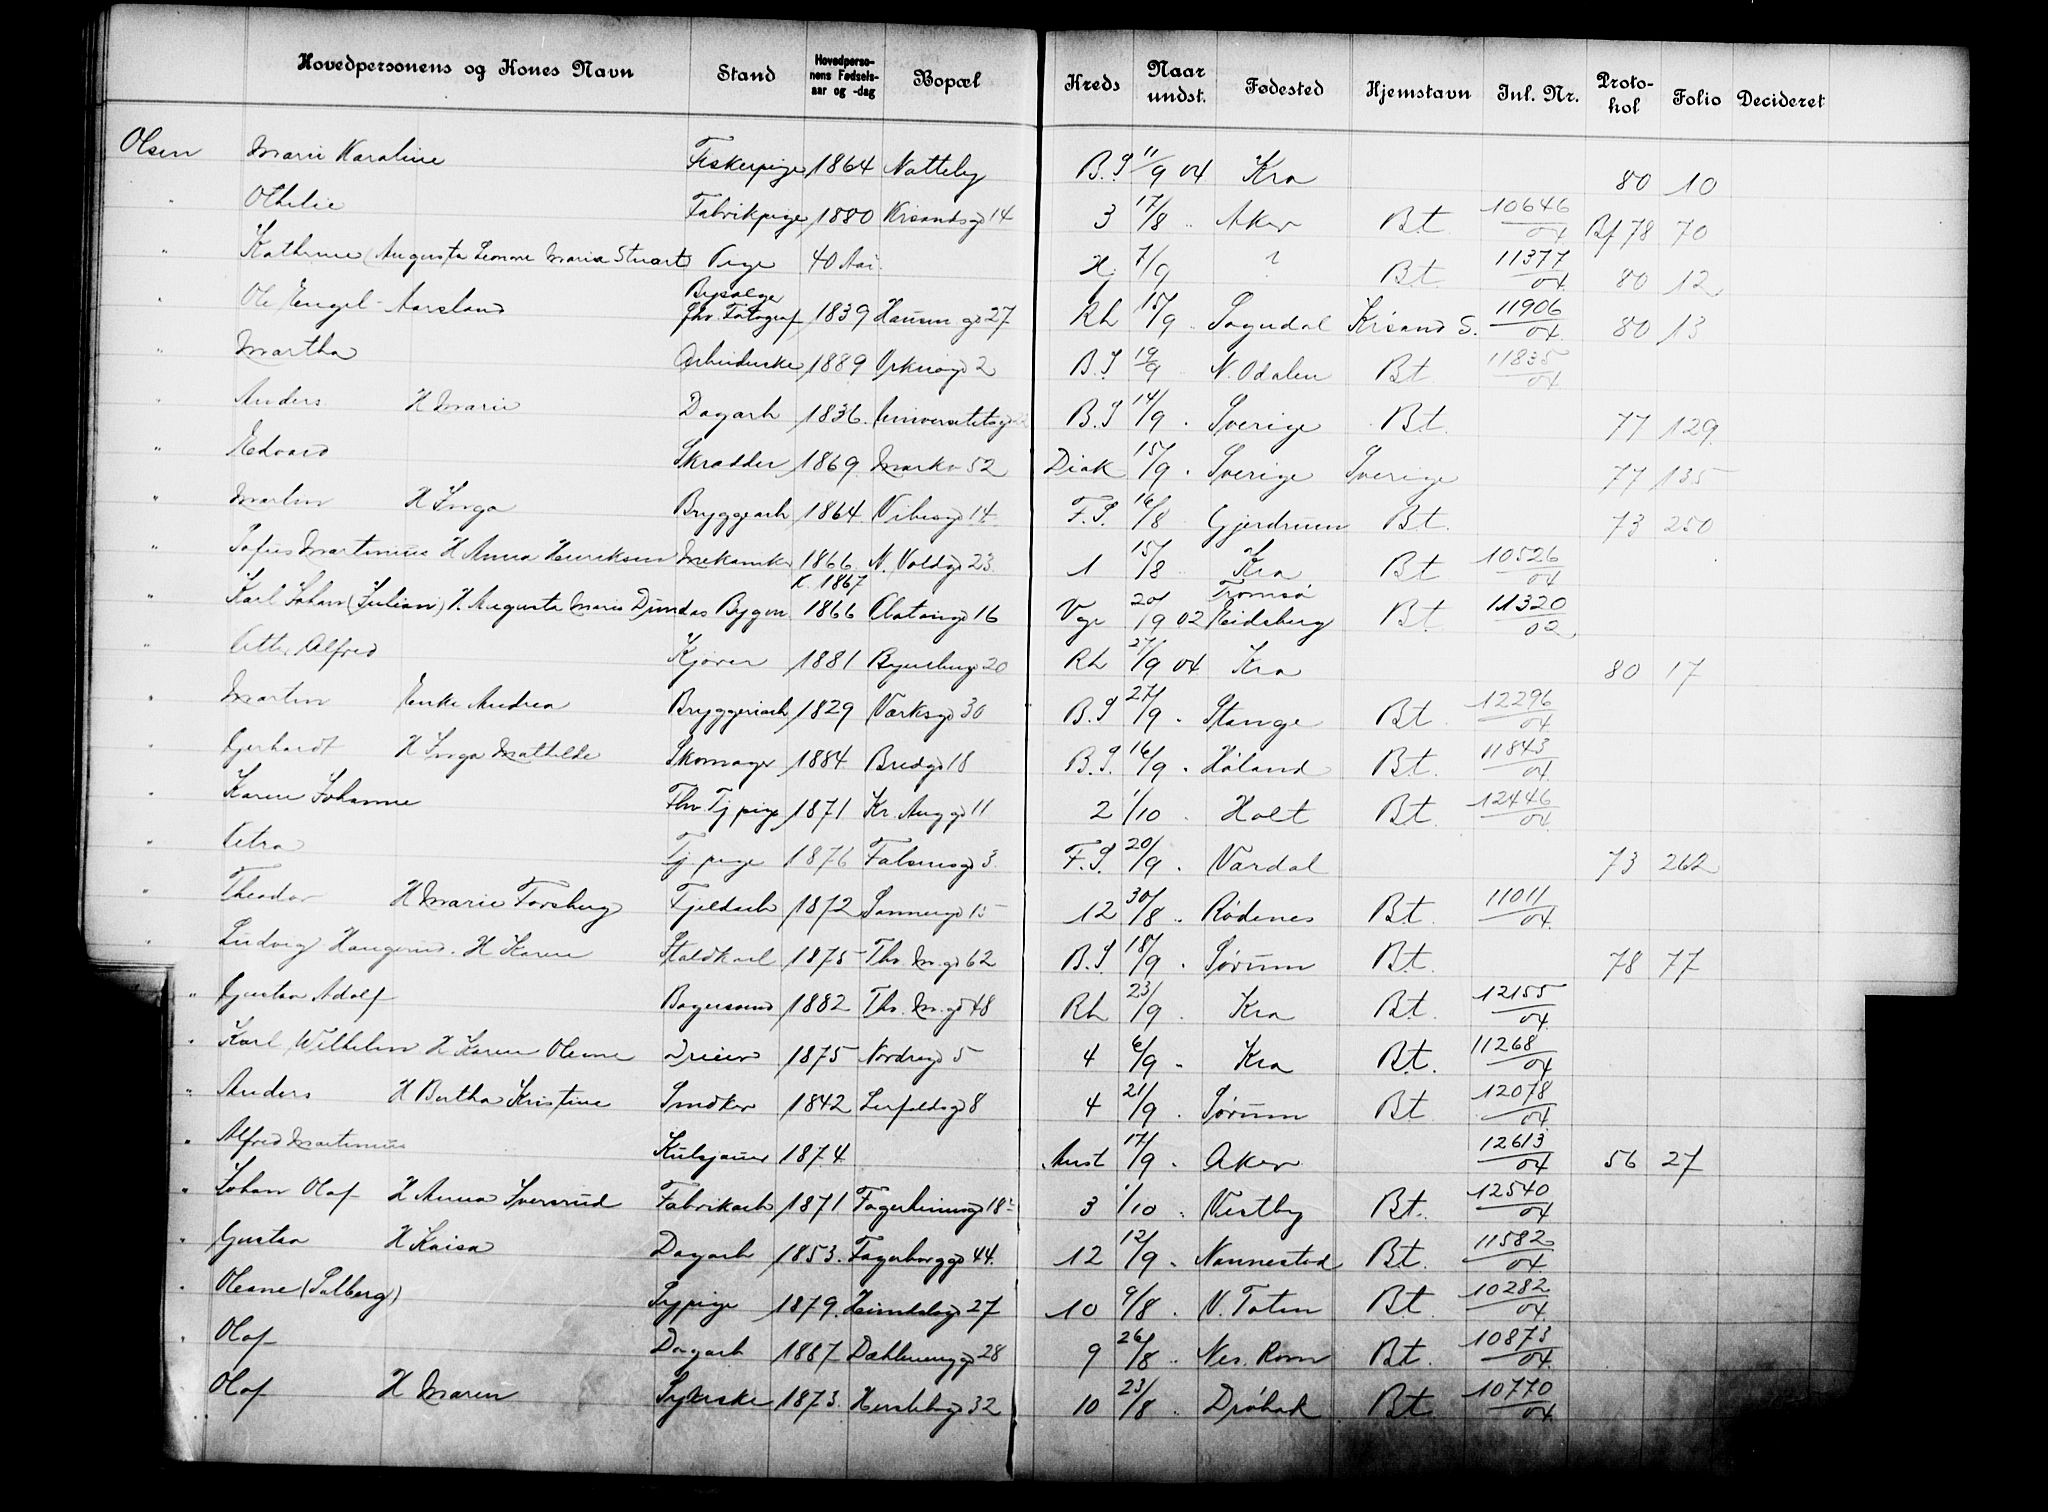 Hovedpersonens og Kones Navn Stand Hovedpersonens Fødselsaar og -dag Bopæl Kreds Naar undst. Fødested Hjemstavn Inl. Nr. Protokol Folio Decideret
Olsen Marie Karoline Fiskerpige 1864 Notteby B.S 11/9 04 Kra 80 10
" Othilie Fabrikpige 1880 Krisandsgd 14 3 17/8 " Aker Bt 10646/04 Bf 78 70
" Kathrine (Augusta Leonore Maria Stuart) Pige 40 Aar Hj 7/9 ? Bt 11377/04 80 12
" Ole Engel Aarsland Bysælger fhv. Fotograf 1839 Hausm gd 27 Rh 15/9 " Sogndal Krisand S. 11906/04 80 13
" Martha Arbeiderske 1889 2 B.S 19/9 N. Odalen Bt 11835/04
" Anders H Marie Dagarb 1836 Universitetsgd B.S 14/9 " Sverige Bt. 77 129
" Edvard Skrædder 1869 Markv 52 Diak 15/9 " Sverige Sverige 77 135
" Martin H Inga Bryggearb 1864 Vibesgd 14 F.S. 16/8 Gjerdrum Bt. 73 250
" Sofus Martinius H Anna Henriksen Mekaniker 1866 K. 1867 N. Voldgd 23 1 15/8 Kra Bt 10526/04
" Karl Johan (Julian) H Augusta Marie Dundas Bygm. 1866 16 Vge 20/9 02 Tromsø Eidsberg Bt 11320/02
" Otto Alfred Kjører 1881 20 Rh 27/9 04 Kra 80 17
" Martin Enke Andrea Bryggeriarb 1829 Værksgd 30 B.S 27/9 " Stange Bt. 12296/04
" Gerhardt H Inga Mathilde Skomager 1884 Bredgd 18 B.S. 16/9 " Høland Bt. 11843/04
" Karen Johanne Fhv. Tj pige 1871 Kr. Aug gd 11 2 1/10 " Holt Bt. 12446/04
" Petra Tj pige 1876 Falsensgd 3 F.S. 20/9 " Vardal 73 262
" Theodor H Marie Forsberg Fjeldarb 1872 Sannergd 15 12 30/8 " Rødenes Bt. 11011/04
" Ludvig Haugerud. H Karen Staldkarl 1875 Thv. M. gd 62 B.S 18/9 " Sørum Bt. 78 77
" Gustav Adolf Bagersvend 1882 Thv. M. gd 48 Rh 23/9 " Kra Bt. 12155/04
" Karl Wilhelm H Karen Oleane Dreier 1875 Nordregd 5 4 6/9 " Kra Bt. 11268/04
" Anders H Bertha Kristine Snedker 1842 Leirfaldsgd 8 4 21/9 " Sørum Bt 12078/04
" Alfred Martinius Kulsjauer 1874 Anst 17/9 " Aker 12613/04 56 27
" Johan Olaf H Anna Sversrud Fabrikarb 1871 18 3 1/10 " Vestby Bt. 12540/04
" Gustav H Kaisa Dagarb 1853. Fagerborggd 44. 12 12/9 " Nannestad Bt. 11582/04
" Oleane (Solberg) Sypige 1879. 27 10 9/8 " V. Toten Bt. 10282/04
" Olaf Dagarb 1887 Dæhlenenggd 28 9 26/8 " Nes. Rom Bt. 10873/04
Olaf H Maren Syerske 1873. Herslebgd 32 10 23/8 " Drøbak Bt 10770/04